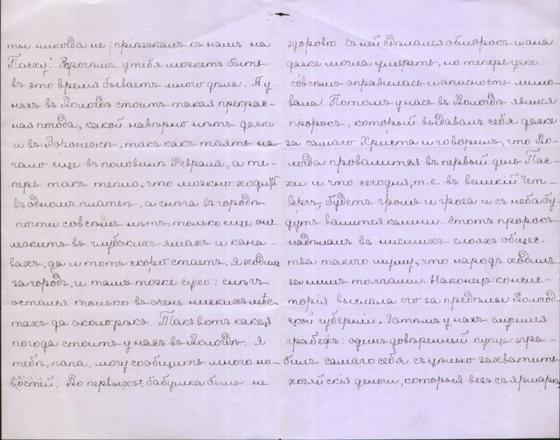 ты никогда не пріѣзжалъ къ намъ на
Пасху! Впрочемъ у тебя можетъ быть
въ это время бываетъ много дѣла. А у
насъ въ Вологдѣ стоитъ такая прекрас-
ная погода, какой навѣрно нѣтъ даже
и въ Воронежѣ, такъ какъ таять на-
чало еще въ половинѣ Февраля, а те-
перь такъ тепло, что можно ходить
въ одномъ платьѣ, а снѣга въ городѣ
почти совсѣмъ нѣтъ, только еще онъ
лежитъ въ глубокихъ ямахъ и кана-
вахъ, да и тотъ скоро стаетъ. Я ходила
за городъ, и тамъ тоже сухо: снѣгъ
остался только въ очень низкихъ мѣс-
тахъ да около рѣкъ. Такъ вотъ какая
погода стоитъ у насъ въ Вологдѣ. Я
тебѣ, папа, могу сообщить много но-
востей. Во первыхъ, бабушка была не
здорова: съ ней сдѣлался обморокъ и она
даже могла умереть, но теперь уже
совсѣмъ оправилась и опасность мино-
вала. Потомъ у насъ въ Вологдѣ явился
пророкъ, который выдавалъ себя даже
за самаго Христа и говорилъ, что Во-
логда провалится въ первый день Пас-
хи и что сегодня, т. е. въ великій Чет-
вергъ, будетъ громъ и гроза и съ неба бу-
дутъ валиться камни. Этотъ пророкъ
надѣлалъ въ низшихъ слояхъ общес-
тва такого шуму, что народъ ходилъ
за нимъ толпами. Наконецъ консис-
торія выслала его за предѣлы Вологод-
ской губерніи. Затѣмъ у насъ случился
грабежъ: одинъ довѣренный купца огра-
билъ самаго себя съ цѣлью захватить
хозяйскія деньги, которыя везъ съ ярмарки,